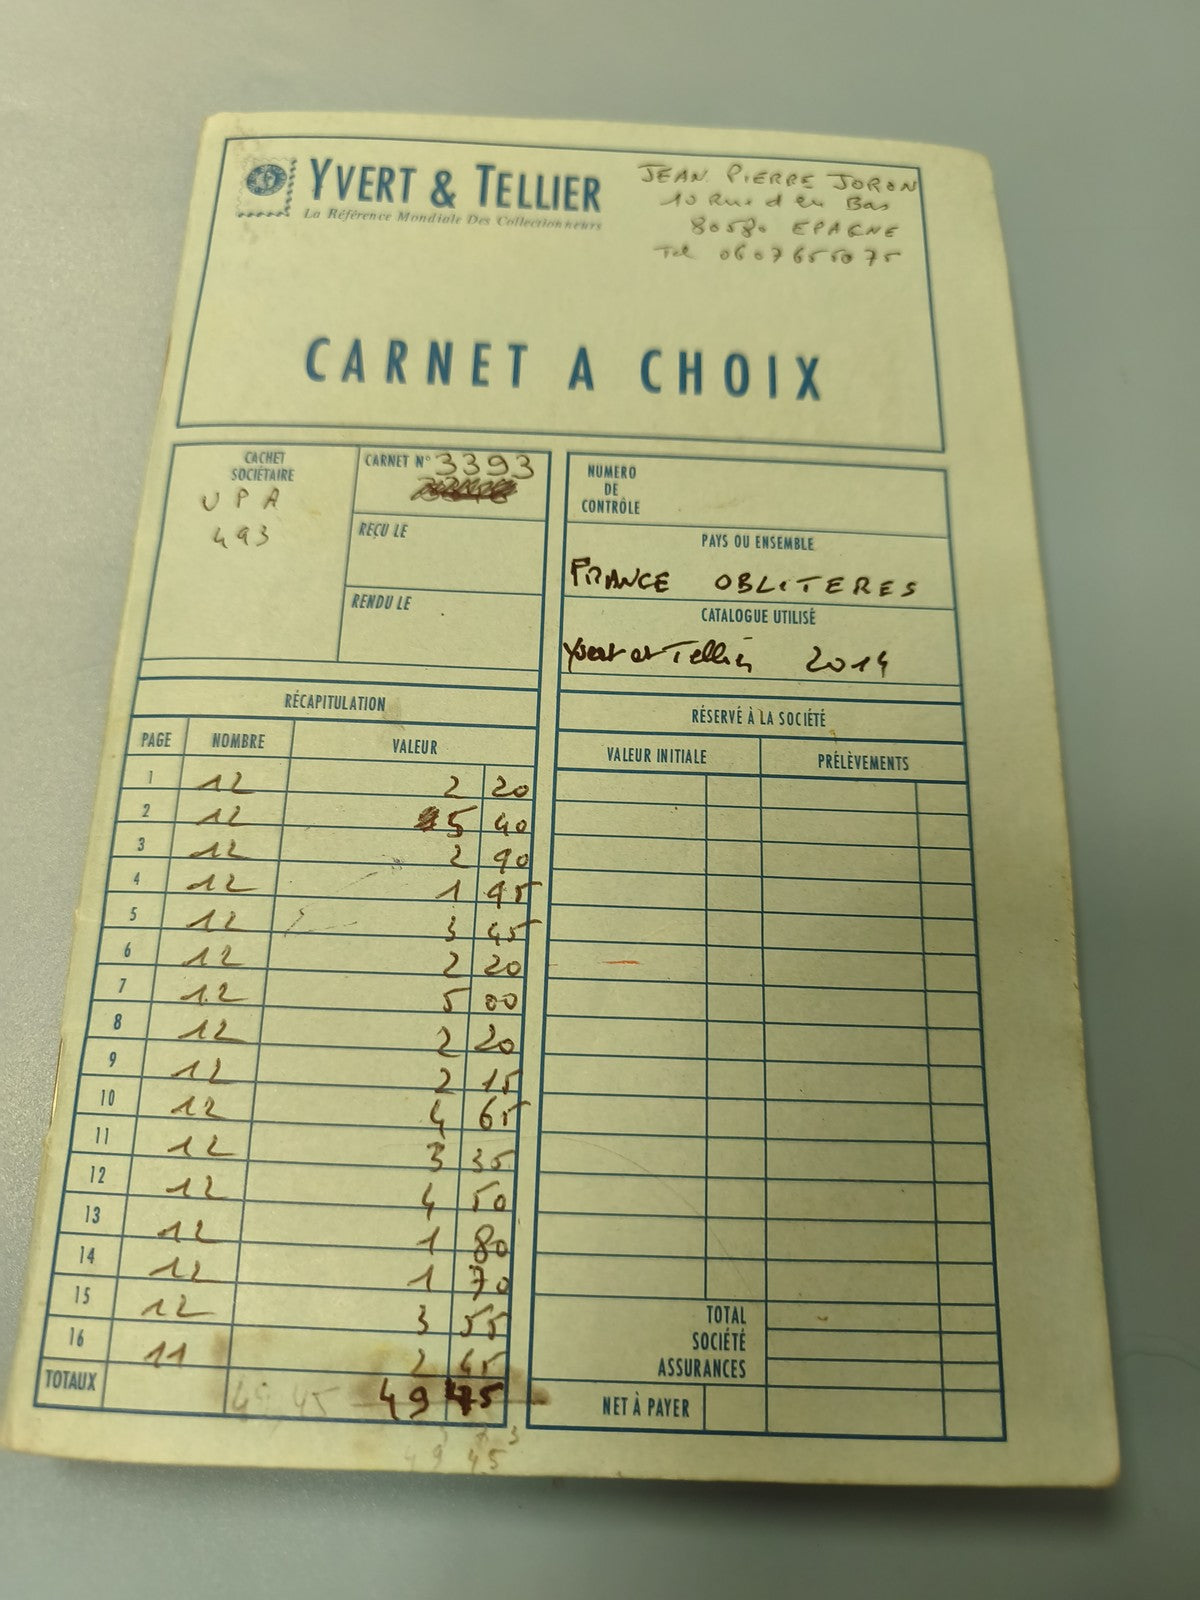 YVERT & TELLIER
La Référence Mondiale Des Collectionneurs
JEAN PIERRE JORON
10 Rue d en Bas
80580 EPAGNE
Tel 0607655075
CARNET A CHOIX
CACHET
SOCIÉTAIRE
UPA
493
CARNET N° 3393
REÇU LE
RENDU LE
NUMERO
DE
CONTRÔLE
PAYS OU ENSEMBLE
FRANCE OBLITERES
CATALOGUE UTILISÉ
Yvert et Tellier 2014
RÉCAPITULATION
PAGE NOMBRE VALEUR
1 12 2 20
2 12 5 40
3 12 2 90
4 12 1 95
5 12 3 45
6 12 2 20
7 12 5 00
8 12 2 20
9 12 2 15
10 12 4 65
11 12 3 35
12 12 4 50
13 12 1 80
14 12 1 70
15 12 3 55
16 11 2 45
TOTAUX 49 45 49 75
49 45
RÉSERVÉ À LA SOCIÉTÉ
VALEUR INITIALE PRÉLÈVEMENTS
TOTAL
SOCIÉTÉ
ASSURANCES
NET À PAYER